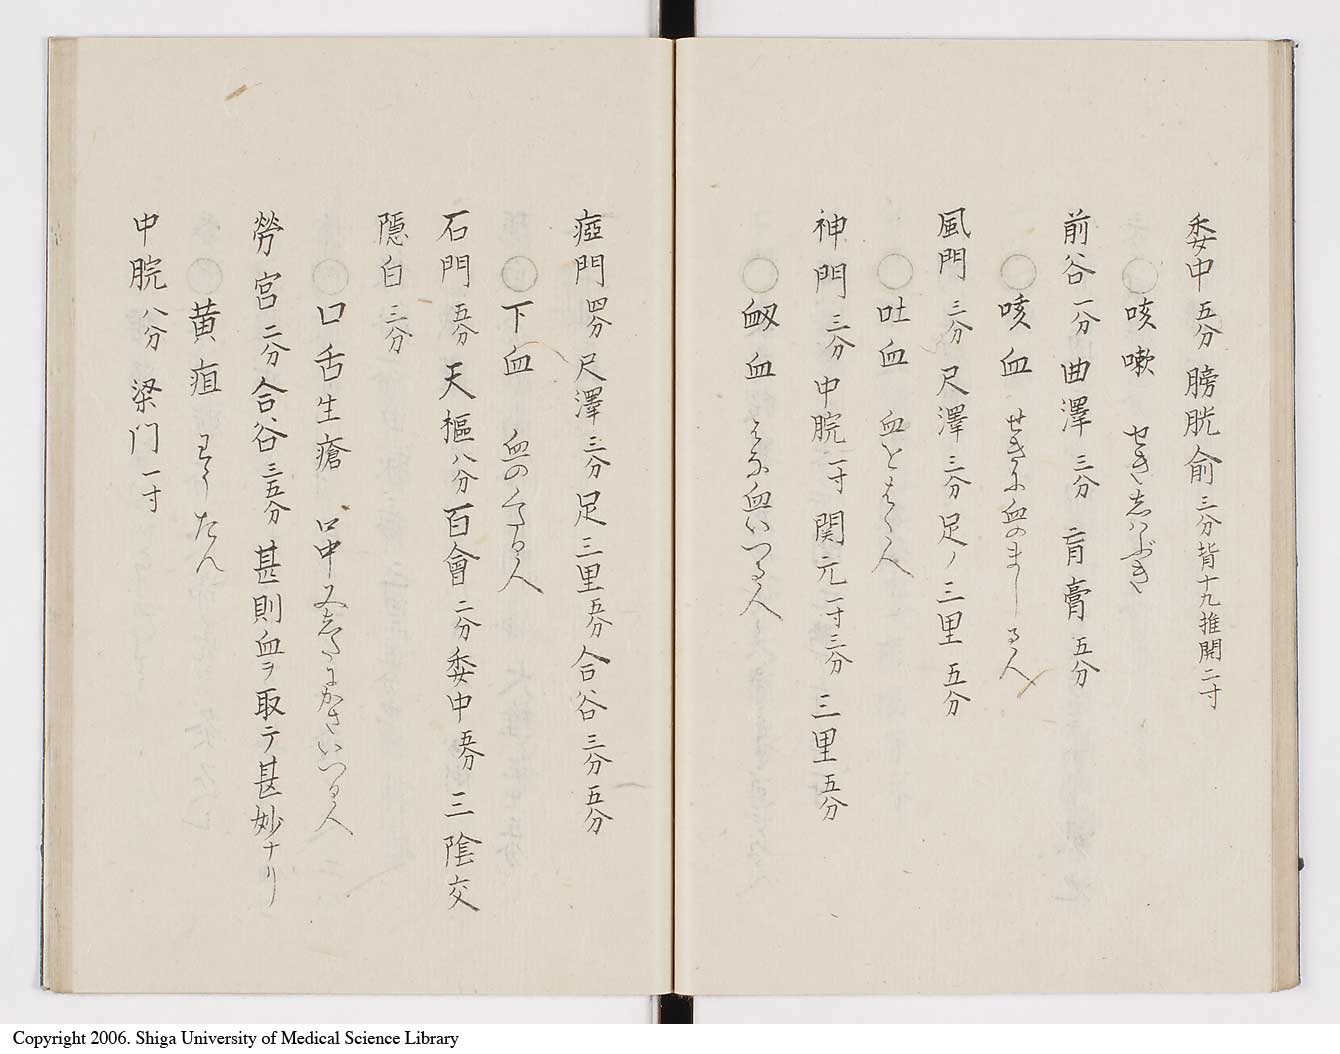 委中 五分 膀胱俞 三分 背十九推開二寸
○咳嗽 せき志ハぶき
前谷 一分 曲澤 三分 肓膏 五分
○咳血 せきに血のましる人
風門 三分 尺澤 三分 足ノ三里 五分
○吐血 血をはく人
神門 三分 中脘 一寸 関元 一寸三分 三里 五分
○衂血 はな血いつる人
瘂門 四分 尺澤 三分 足三里 五分 合谷 三分五分
○下血 血のくたる人
石門 五分 天樞 八分 百會 二分 委中 五分 三陰交
隱白 三分
○口舌生瘡 口中又志たにかさいつる人
勞宮 二分 合谷 三五分 甚則血ヲ取テ甚妙ナリ
○黄疸 わうたん
中脘 八分 梁门 一寸
Copyright 2006. Shiga University of Medical Science Library